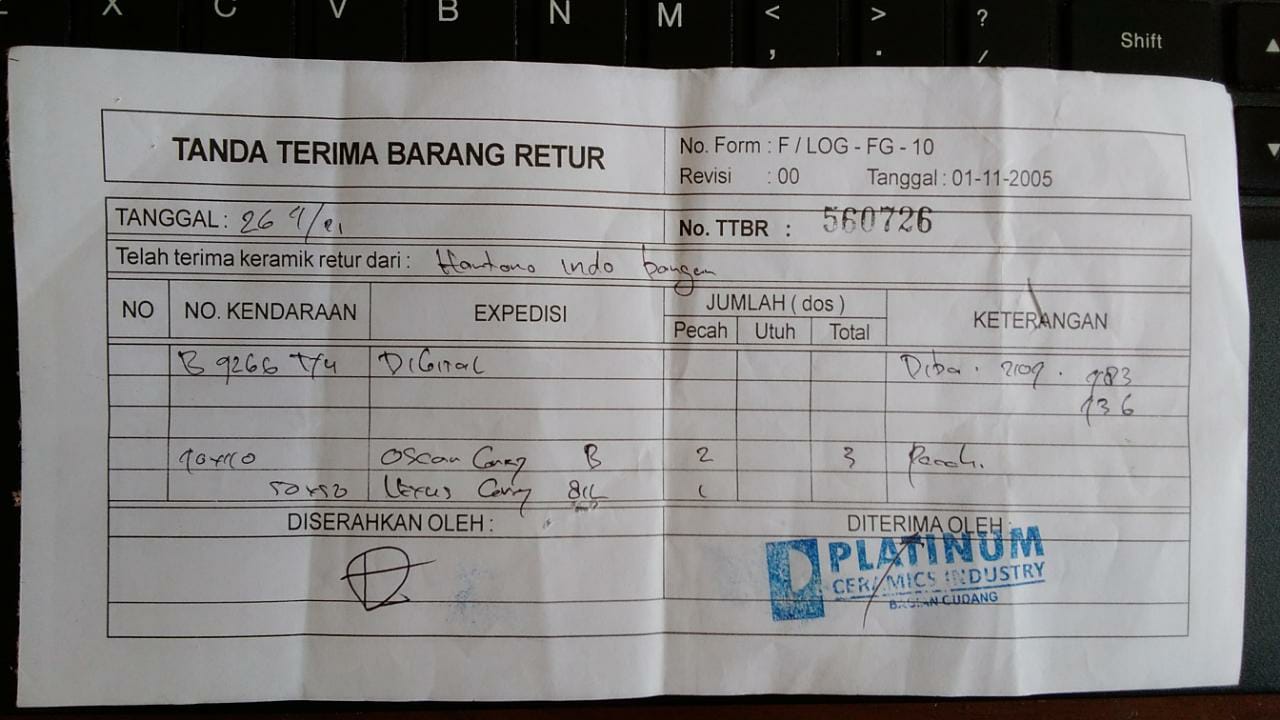 X C V B N M < , > . ? / Shift
TANDA TERIMA BARANG RETUR
No. Form : F / LOG - FG - 10
Revisi : 00 Tanggal : 01-11-2005
TANGGAL : 26
No. TTBR : 560726
Telah terima keramik retur dari : Hantono Indo bangun
NO NO. KENDARAAN EXPEDISI JUMLAH ( dos ) KETERANGAN
Pecah Utuh Total
B 9266 DIGITAL
136
40x40 B 2 3 Pecah.
50x50 Lexus
DISERAHKAN OLEH : DITERIMA OLEH :
PLATINUM
CERAMICS INDUSTRY
BAGIAN GUDANG